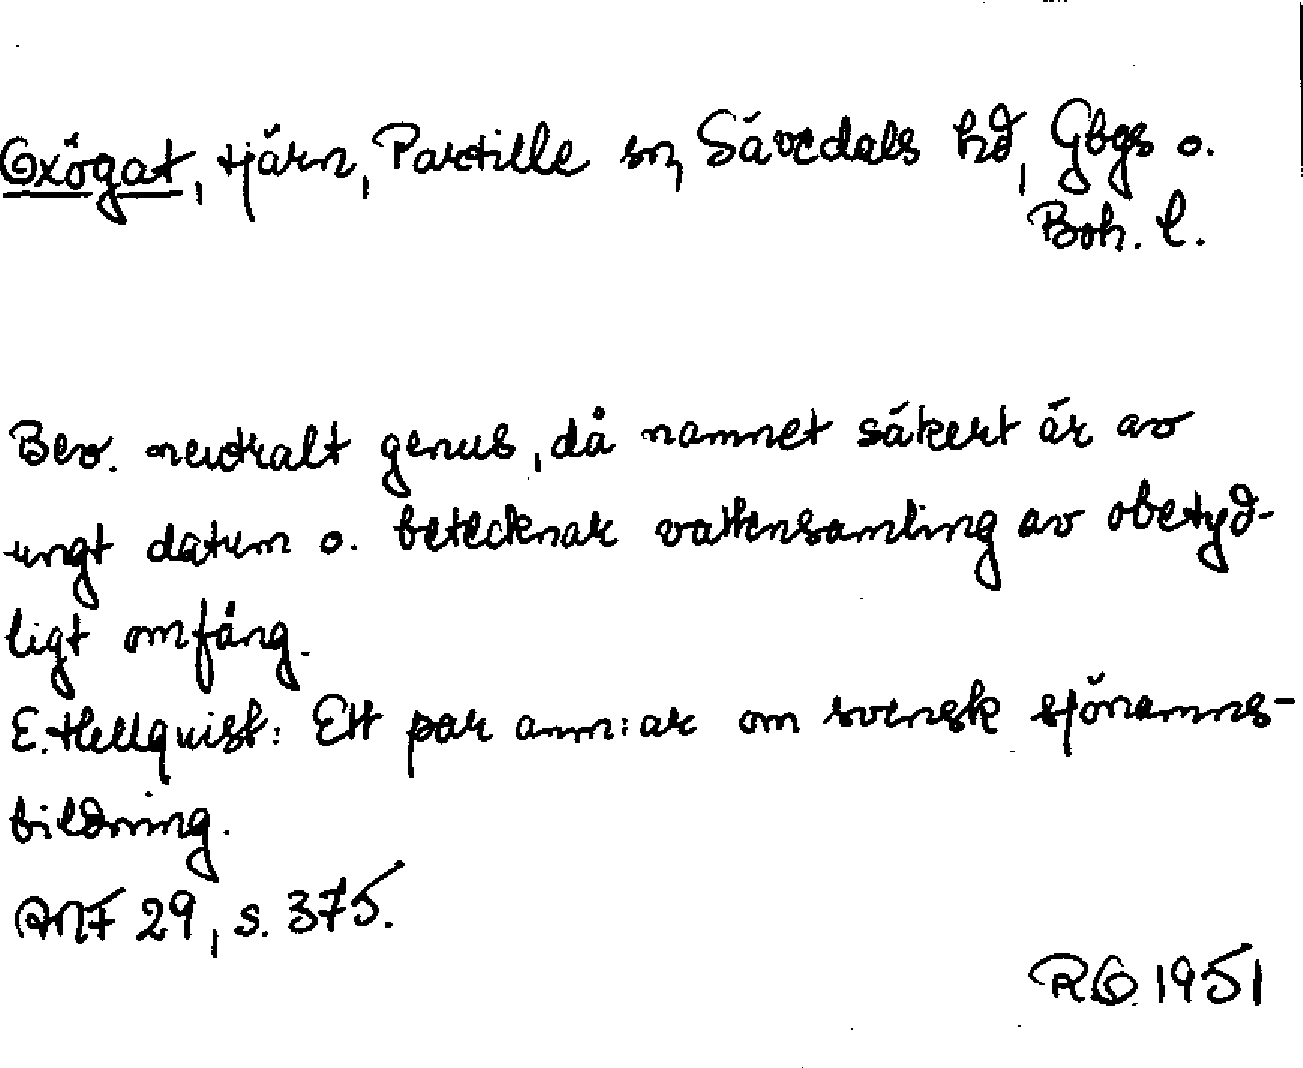 Oxögat, tjärn, Partille sn, Sävedals hd, Gbgs o.
Boh. l.
Bev. neutralt genus, då namnet säkert är av
ungt datum o. betecknar vattensamling av obetyd-
ligt omfång.
E. Hellquist: Ett par anm:ar om svensk sjönamns-
bildning.
ANF 29, s. 375.
RO. 1951